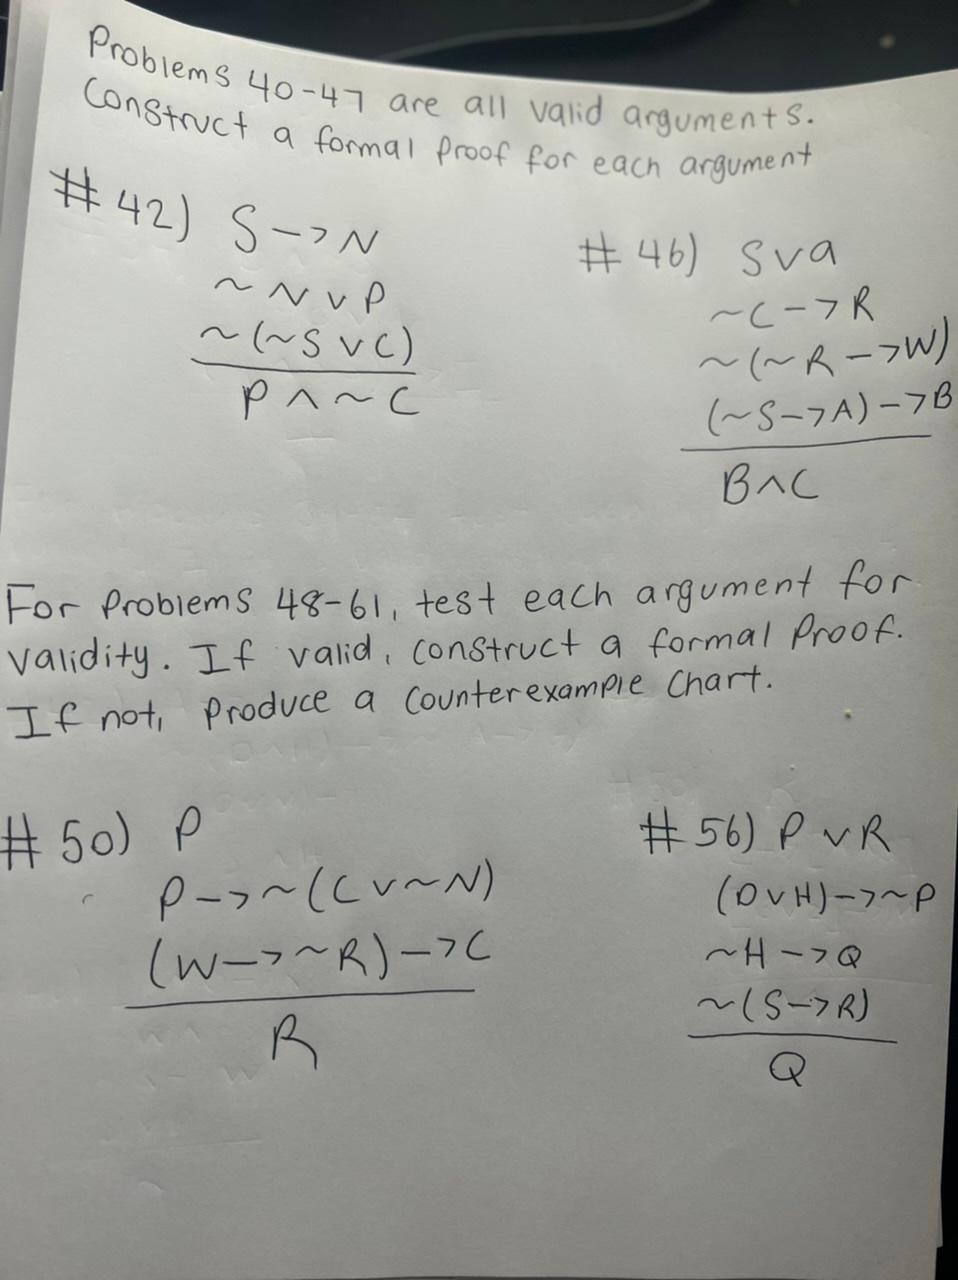 Problems 40-47 are all valid arguments.
Construct a formal proof for each argument
#42) S->N
~N∨P
~(~S∨C)
P∧~C
#46) S∨a
~C->R
~(~R->W)
(~S->A)->B
B∧C
For problems 48-61, test each argument for
validity. If valid, construct a formal proof.
If not, produce a counterexample chart.
#50) P
P->~(C∨~N)
(W->~R)->C
R
#56) P∨R
(D∨H)->~P
~H->Q
~(S->R)
Q